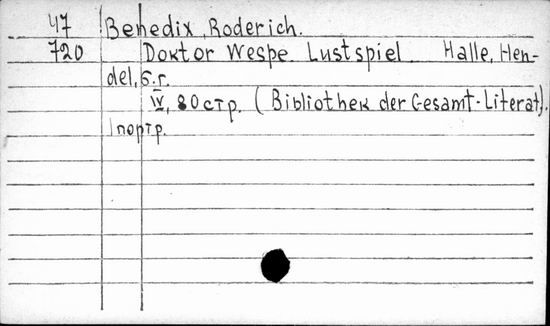 47 Benedix, Roderich.
720 Doktor Wespe. Lustspiel. Halle, Hen-
del, б.г.
IV, 80 стр. (Bibliothek der Gesamt-Literat).
1 портр.